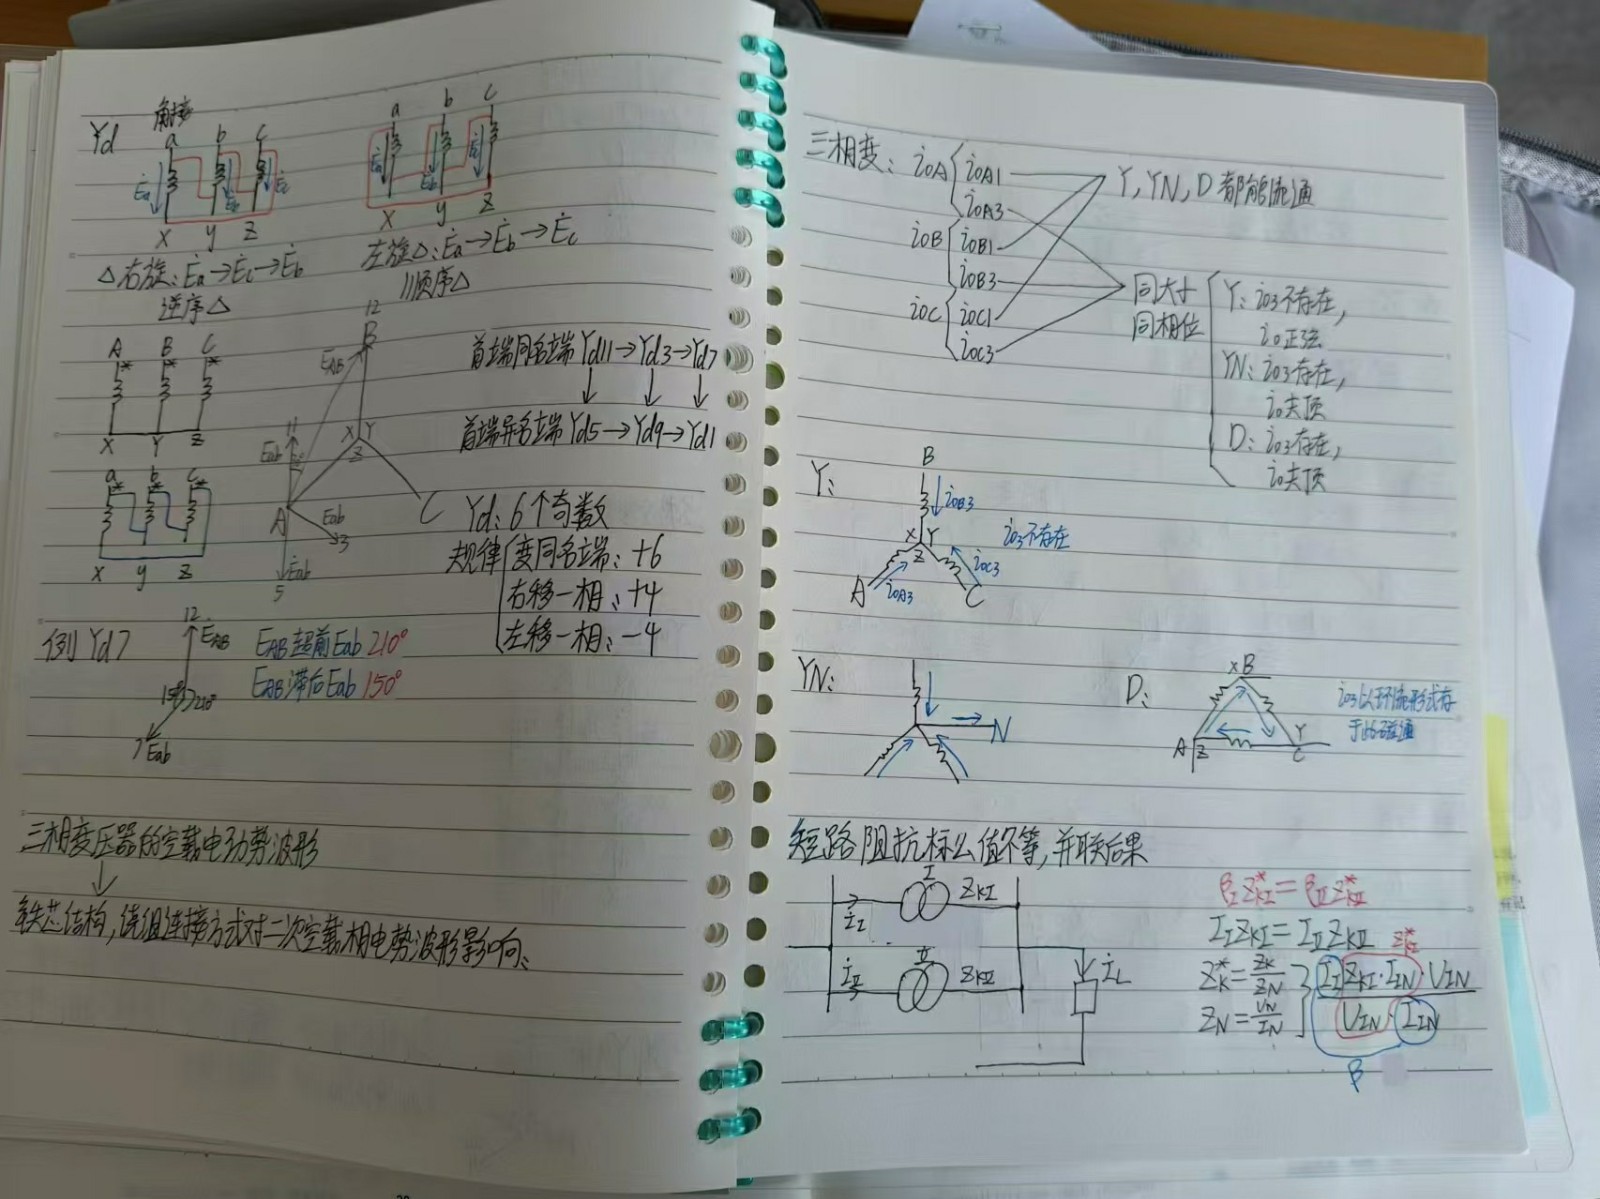 Yd 角接
a b c
a b c
Ėa Ėb Ėc
Ėa Ėb Ėc
X y Z
X y Z
△右旋: Ėa→Ėc→Ėb
逆序△
左旋△: Ėa→Ėb→Ėc
顺序△
A B C
* * *
X Y Z
a b c
* * *
X y Z
12
B
EAB
X Y
Z
11
Eab
A
Eab
3
C
Eab
5
首端同名端 Yd11→Yd3→Yd7
首端异名端 Yd5→Yd9→Yd1
Yd: 6个奇数
规律
变同名端: +6
右移一相: +4
左移一相: -4
例 Yd7
12
EAB
150° 210°
7 Eab
EAB超前Eab 210°
EAB滞后Eab 150°
三相变压器的空载电动势波形
铁芯结构, 绕组连接方式对二次空载相电势波形影响
三相变: i0A i0A1
i0A3
i0B i0B1
i0B3
i0C i0C1
i0C3
Y, YN, D 都能流通
同大小
同相位
Y: i03不存在,
i0正弦
YN: i03存在,
i0尖顶
D: i03存在,
i0尖顶
Y:
B
i0B3
X Y
Z
i03不存在
A i0A3
i0C3
C
YN:
N
D:
X B
A Z
Y
C
i03以环流形式存
短路阻抗标么值不等, 并联后果
I ZKI
İI
II ZKII
İII
İL
βI ZKI* = βII ZKII*
II ZKI = III ZKII
ZK* = ZK/ZN
ZN = UN/IN
ZKI*
II ZKI·IIN·UIN
UIN·IIN
β